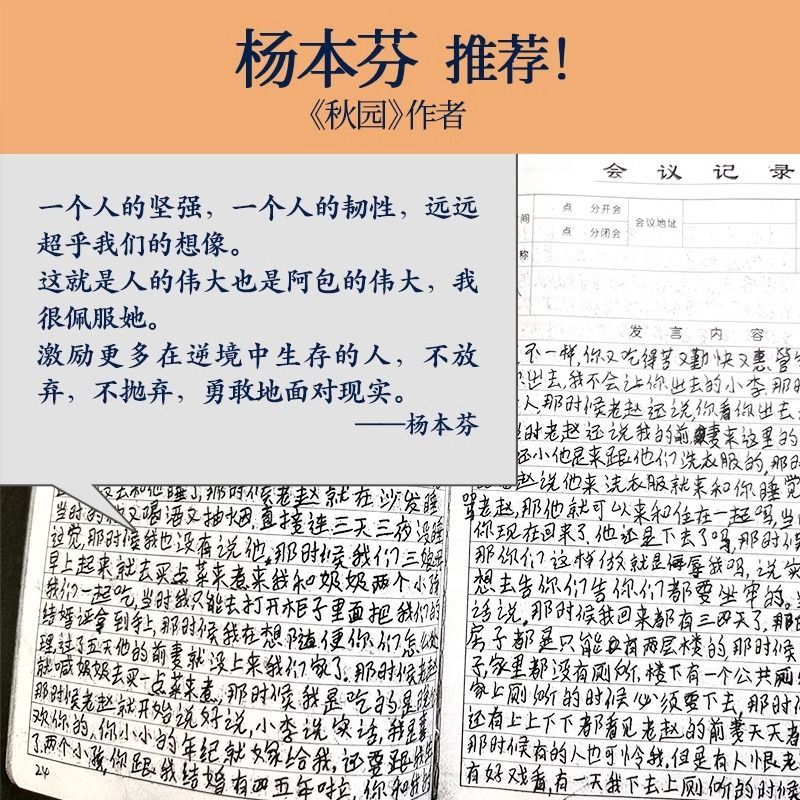 杨本芬 推荐!
《秋园》作者
一个人的坚强，一个人的韧性，远远
超乎我们的想像。
这就是人的伟大也是阿包的伟大，我
很佩服她。
激励更多在逆境中生存的人，不放
弃，不抛弃，勇敢地面对现实。
——杨本芬
去和他睡了，那时候老赵就在沙发睡
当时的他又喝酒又抽烟，直接连三天三夜没睡
过觉，那时候我也没有说他，那时候我们三娘母
早上起来就去买点菜来煮来我和奶奶两个小孩
我们一起吃，当时我只能去打开柜子里面把我们的
结婚证拿到手上，那时候我在想随便你们怎么处
理，过了五天他的前妻就没上来我们家了。那时候老赵
就喊奶奶去买一点菜来煮，那时候我是吃的是
那时候老赵就开始说好说，小李说实话，我是喜
欢你的，你小小的年纪就嫁给我，还要跟我生
了两个小孩，你跟我结婚有四五年啦，你和
24
会议记录
间
点 分开会
点 分闭会
会议地址
称
人
发言内容
不一样，你又吃得苦又勤快又惠
出去，我不会让你出去的小李，那时
人，那时候老赵还说，你看你出去
时老赵还说我的前妻来这里的
还小他是来跟他们洗衣服的，那时
老赵说他来洗衣服就来和你睡觉
骂老赵，那他就可以来和住在一起吗，当
你现在回来了，他还是下去了吗，那时候
那你们这样做就是侮辱我吗，说实
想去告你们告你们都要坐牢的，
话说，那时候我回来都有三四天了，那
房子都是只能有两层楼的那时候
子，家里都没有厕所，楼下有一个公共厕
家上厕所的时候必须要下去，那时
还有上上下下都看见老赵的前妻天天
那时候有的人也可怜我，但是有人恨老
有好戏看，有一天我下去上厕所的时